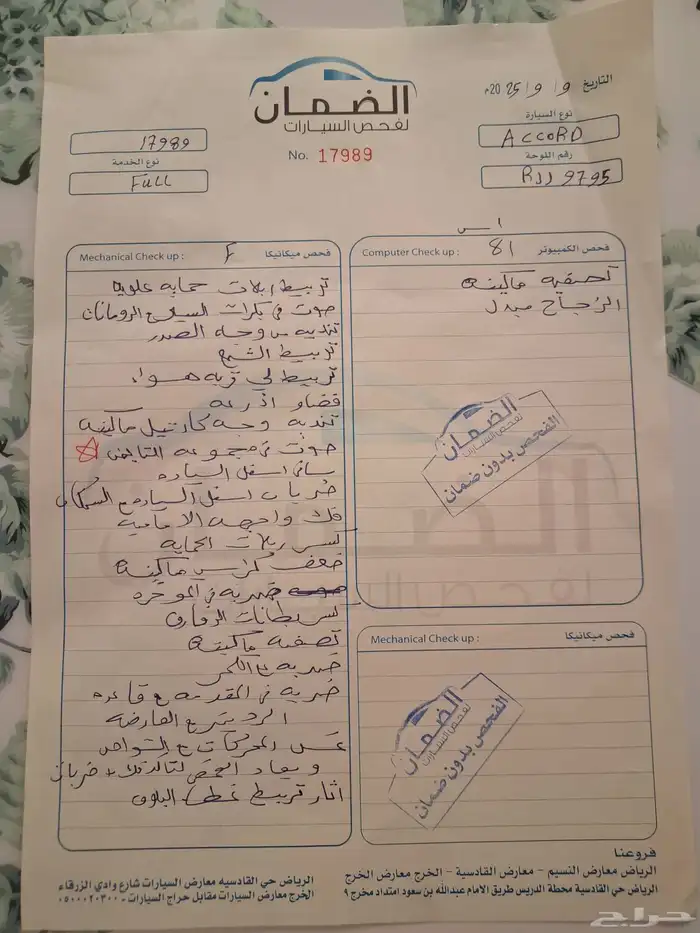 الضمان
لفحص السيارات
No. 17989
التاريخ 9/9/2025م
نوع السيارة
ACCORD
رقم اللوحة
RJJ 9795
17989
نوع الخدمة
FULL
Mechanical Check up : F فحص ميكانيكا
تربيط ربلات حمايه علويه
صوت في بكرات السير مع الرومانات
تنديه من وجه الصدر
تربيط الشبح
تربيط لي قربه هواء
قضاو اذرعه
تنديه وجه كارتيل ماكينه
صوت في مجموعه التايمن
اسفل السياره
ضربات اسفل السياره مع السمكات
فك واجهه الاماميه
كسر ربلات الحمايه
ضعف كراسي ماكينه
ضربه في الموخره
كسر بطانات الرفارف
تصفيه ماكينه
ضربه مع
ضربه في المقدمه مع قاعده
الرديتر مع العارضه
غسل المحركات مع الشواصي
ويعاد الفحص
اثار تربيط غطا البلوف
Computer Check up : 81 فحص الكمبيوتر
تصفيه ماكينه
الزجاج مبدل
الضمان
لفحص السيارات
الفحص بدون ضمان
Mechanical Check up : فحص ميكانيكا
الضمان
لفحص السيارات
الفحص بدون ضمان
فروعنا
الرياض معارض النسيم - معارض القادسية - الخرج معارض الخرج
الرياض حي القادسية محطة الدريس طريق الامام عبدالله بن سعود امتداد مخرج ٩
الرياض حي القادسيه معارض السيارات شارع وادي الزرقاء
الخرج معارض السيارات مقابل حراج السيارات - ٠٥١٠٠٢٠٣٠٠
حراج